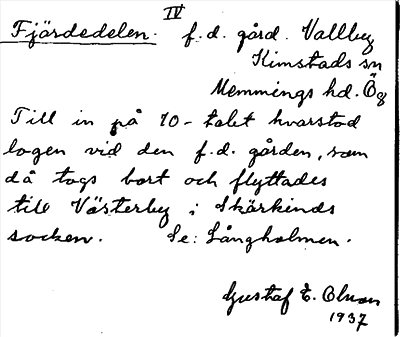 IV
Fjärdedelen. f.d. gård. Vallby
Kimstads sn
Memmings hd. Ög
Till in på 70-talet kvarstod
logen vid den f.d. gården, som
då togs bort och flyttades
till Västerby i Skärkinds
socken. Se: Långholmen.
Gustaf E. Olsson
1937